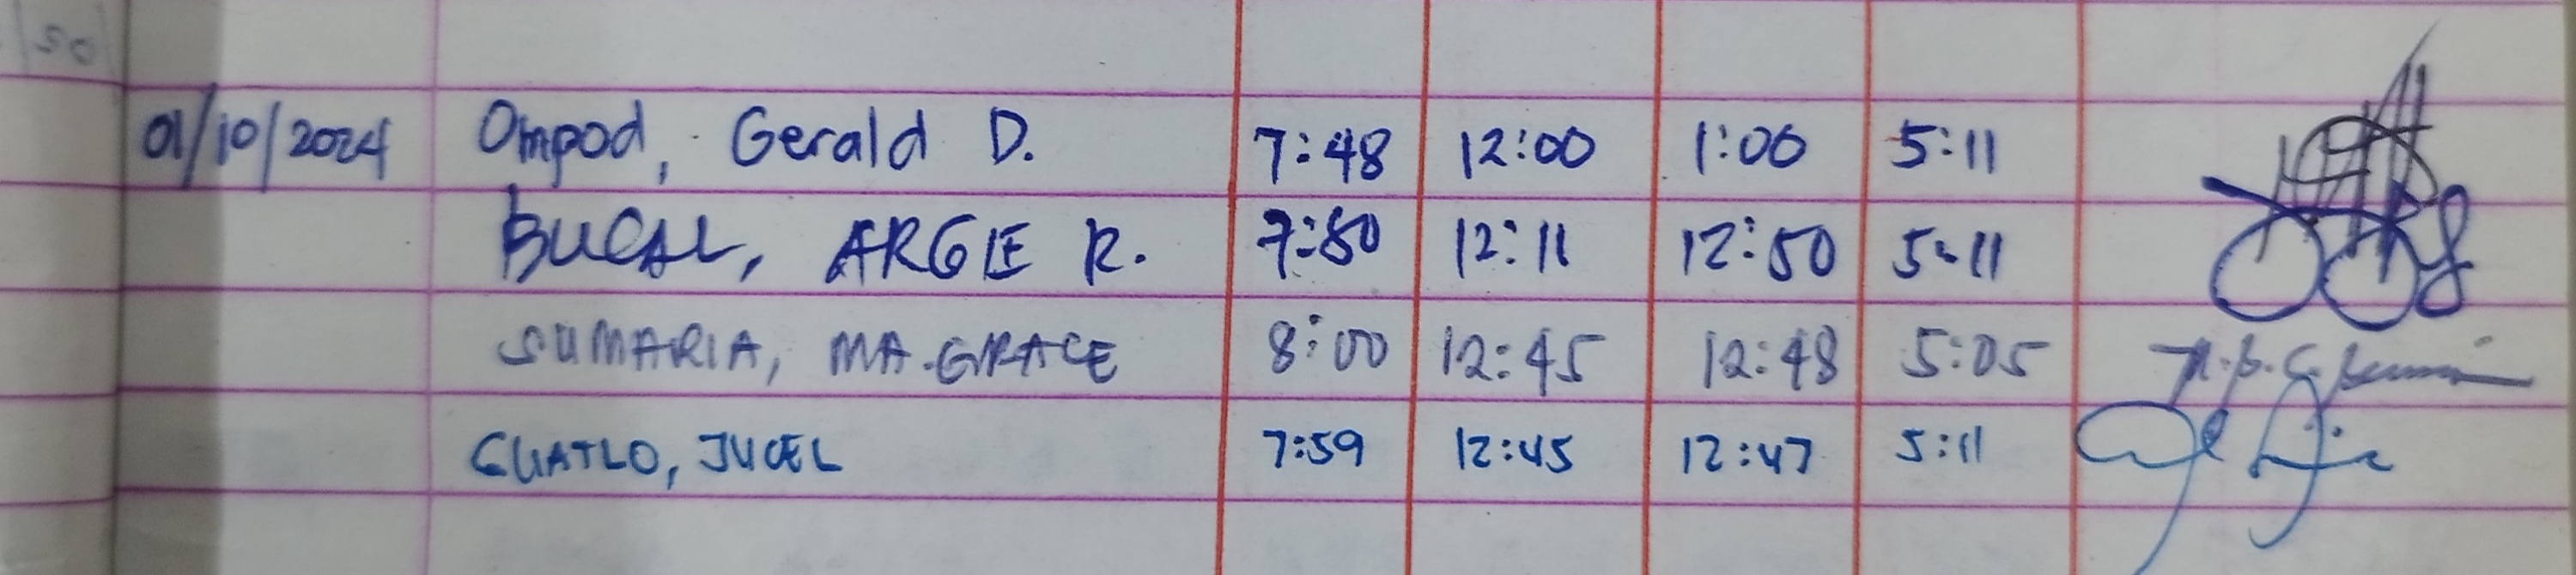 50
01/10/2024 Ompod, Gerald D. 7:48 12:00 1:00 5:11
BUCAL, ARGIE R. 7:50 12:11 12:50 5:11
SUMARIA, MA. GRACE 8:00 12:45 12:48 5:05
GUATLO, JUCEL 7:59 12:45 12:47 5:11